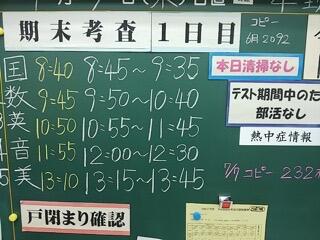 コピー
6月 2092
期末考査 1日目
国 8:40 8:45～9:35
数 9:45 9:50～10:40
英 10:50 10:55～11:45
音 11:55 12:00～12:30
美 13:10 13:15～13:45
戸閉まり確認
本日清掃なし
テスト期間中のた
部活なし
熱中症情報
7/9 コピー 232